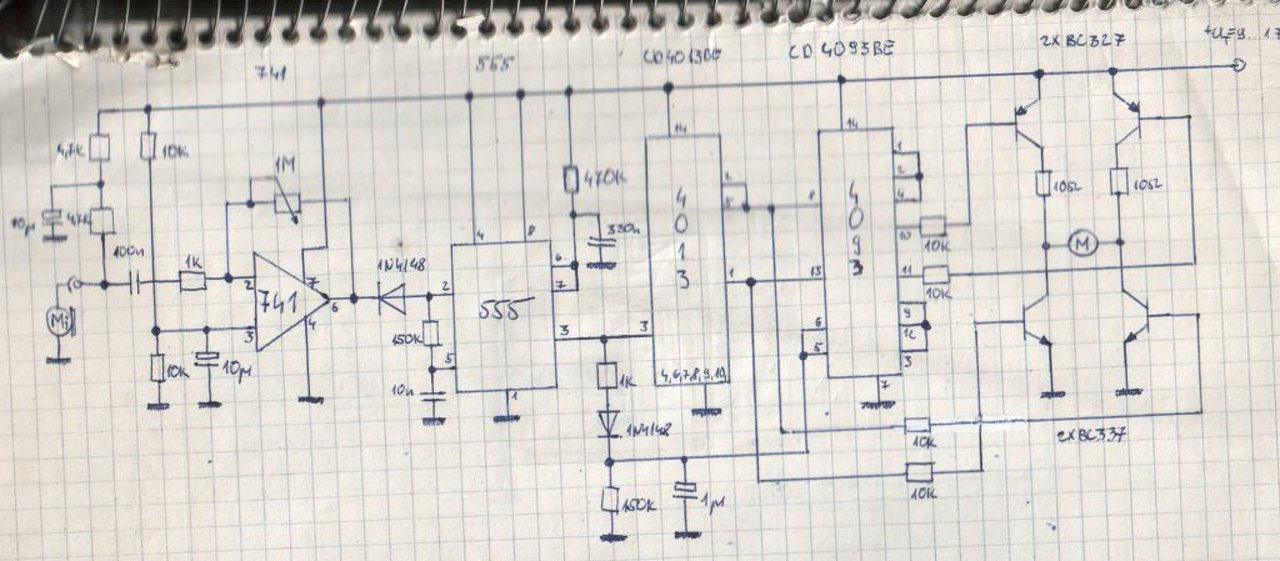 741
555
CD4013BE
CD4093BE
2xBC327
4,7K
10K
1M
10µ
4,7K
100n
1K
2
741
7
6
4
3
10K
10µ
Mi
1N4148
2
150K
5
10n
4
8
555
6
7
3
1
470K
330n
1K
1N4148
150K
1µ
14
4013
2
5
1
3
4,6,7,8,9,10
14
4093
8
13
6
5
1
2
4
10
11
9
12
3
7
10K
10K
10K
10K
10Ω
10Ω
M
2xBC337